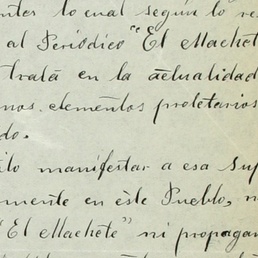 ntes lo cual según lo re
al Periódico "El Machete
trata en la actualidad
nos elementos proletarios
do.
ito manifestar a esa Sup
mente en éste Pueblo, n
"El Machete" ni propagan